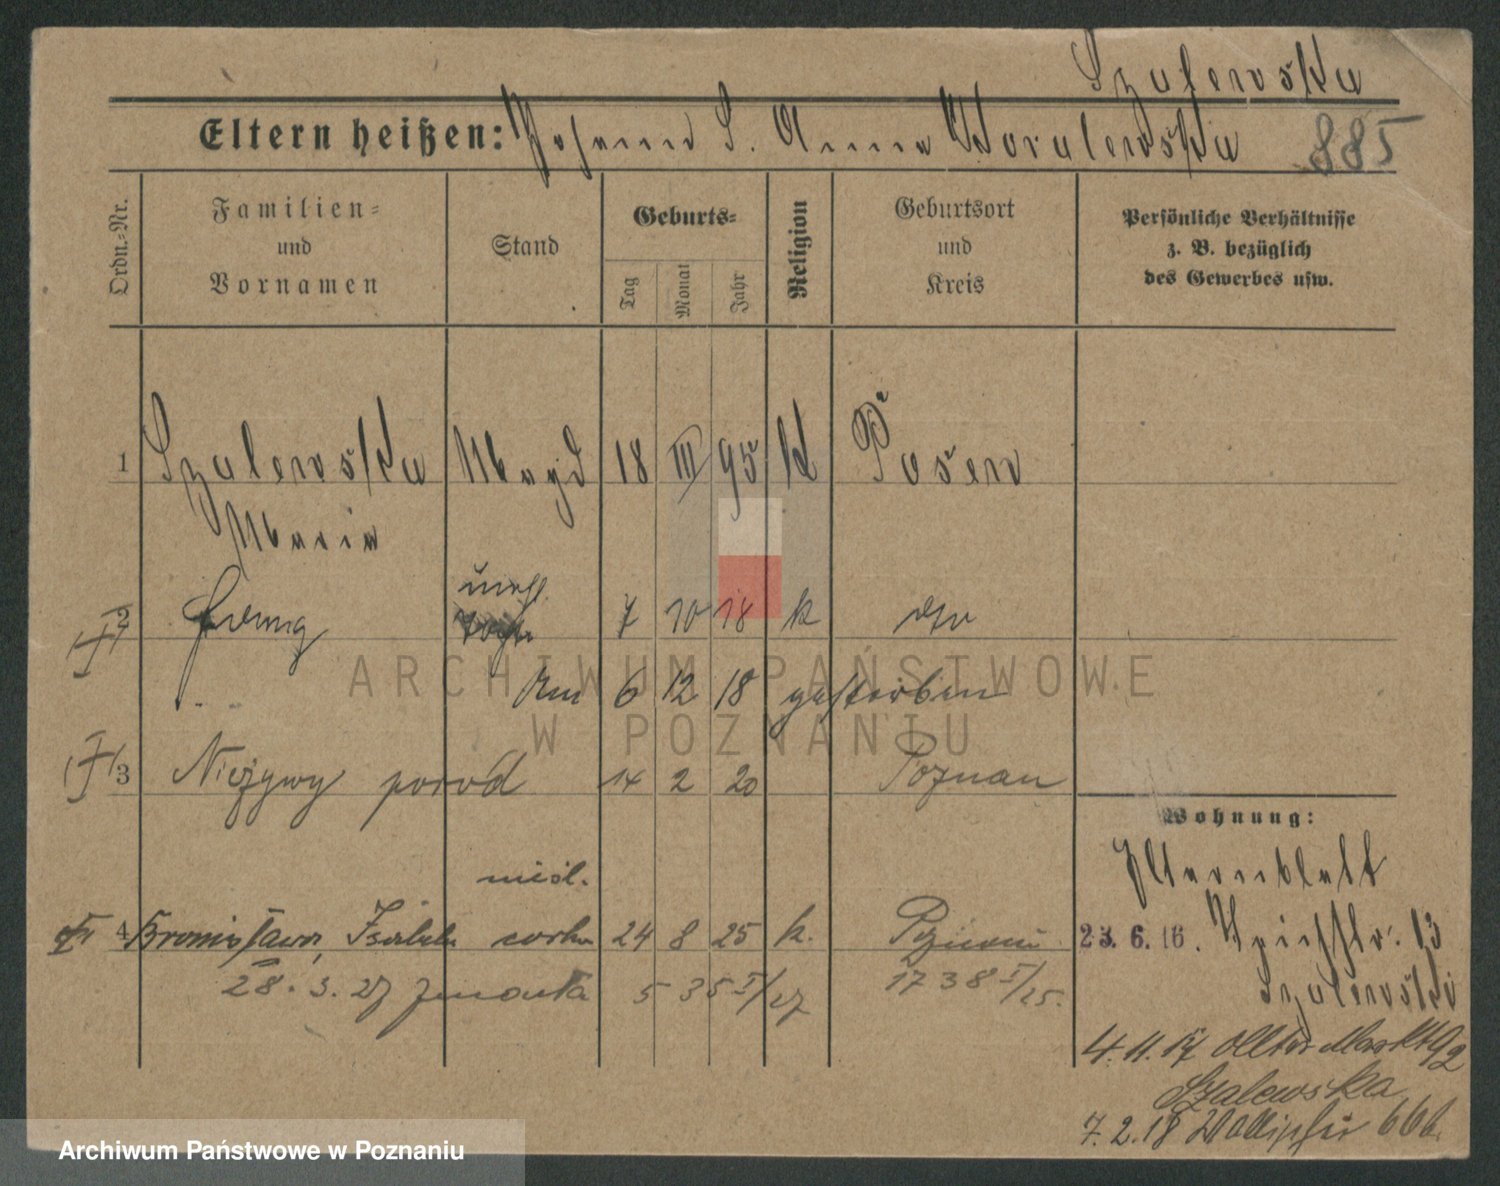 Szalewska
Eltern heißen: Johann S. Anna Kovalewska 885
Ordn.-Nr.
Familien- und Vornamen
Stand
Geburts-
Tag
Monat
Jahr
Religion
Geburtsort und Kreis
Persönliche Verhältnisse
z. B. bezüglich
des Gewerbes usw.
1 Szalewska Magd 18 III 95 k Posen
Maria
unehl.
2 7 10 18 k
am 6 12 18 gestorben
3 Nieżywy poród 14 2 20 Poznań
Wohnung:
Elternblatt
nieśl.
4 Bronisława, Izabela córka 24 8 25 k. Poznań
23. 6. 16. 13
28. 3. 27 zmarła 5 35 I/27 1738 I/25.
Szalewski
4. 11. 17 Alter Markt 92
Szalewska
7. 2. 18 Wallischei 66b.
ARCHIWUM PAŃSTWOWE
W POZNANIU
Archiwum Państwowe w Poznaniu